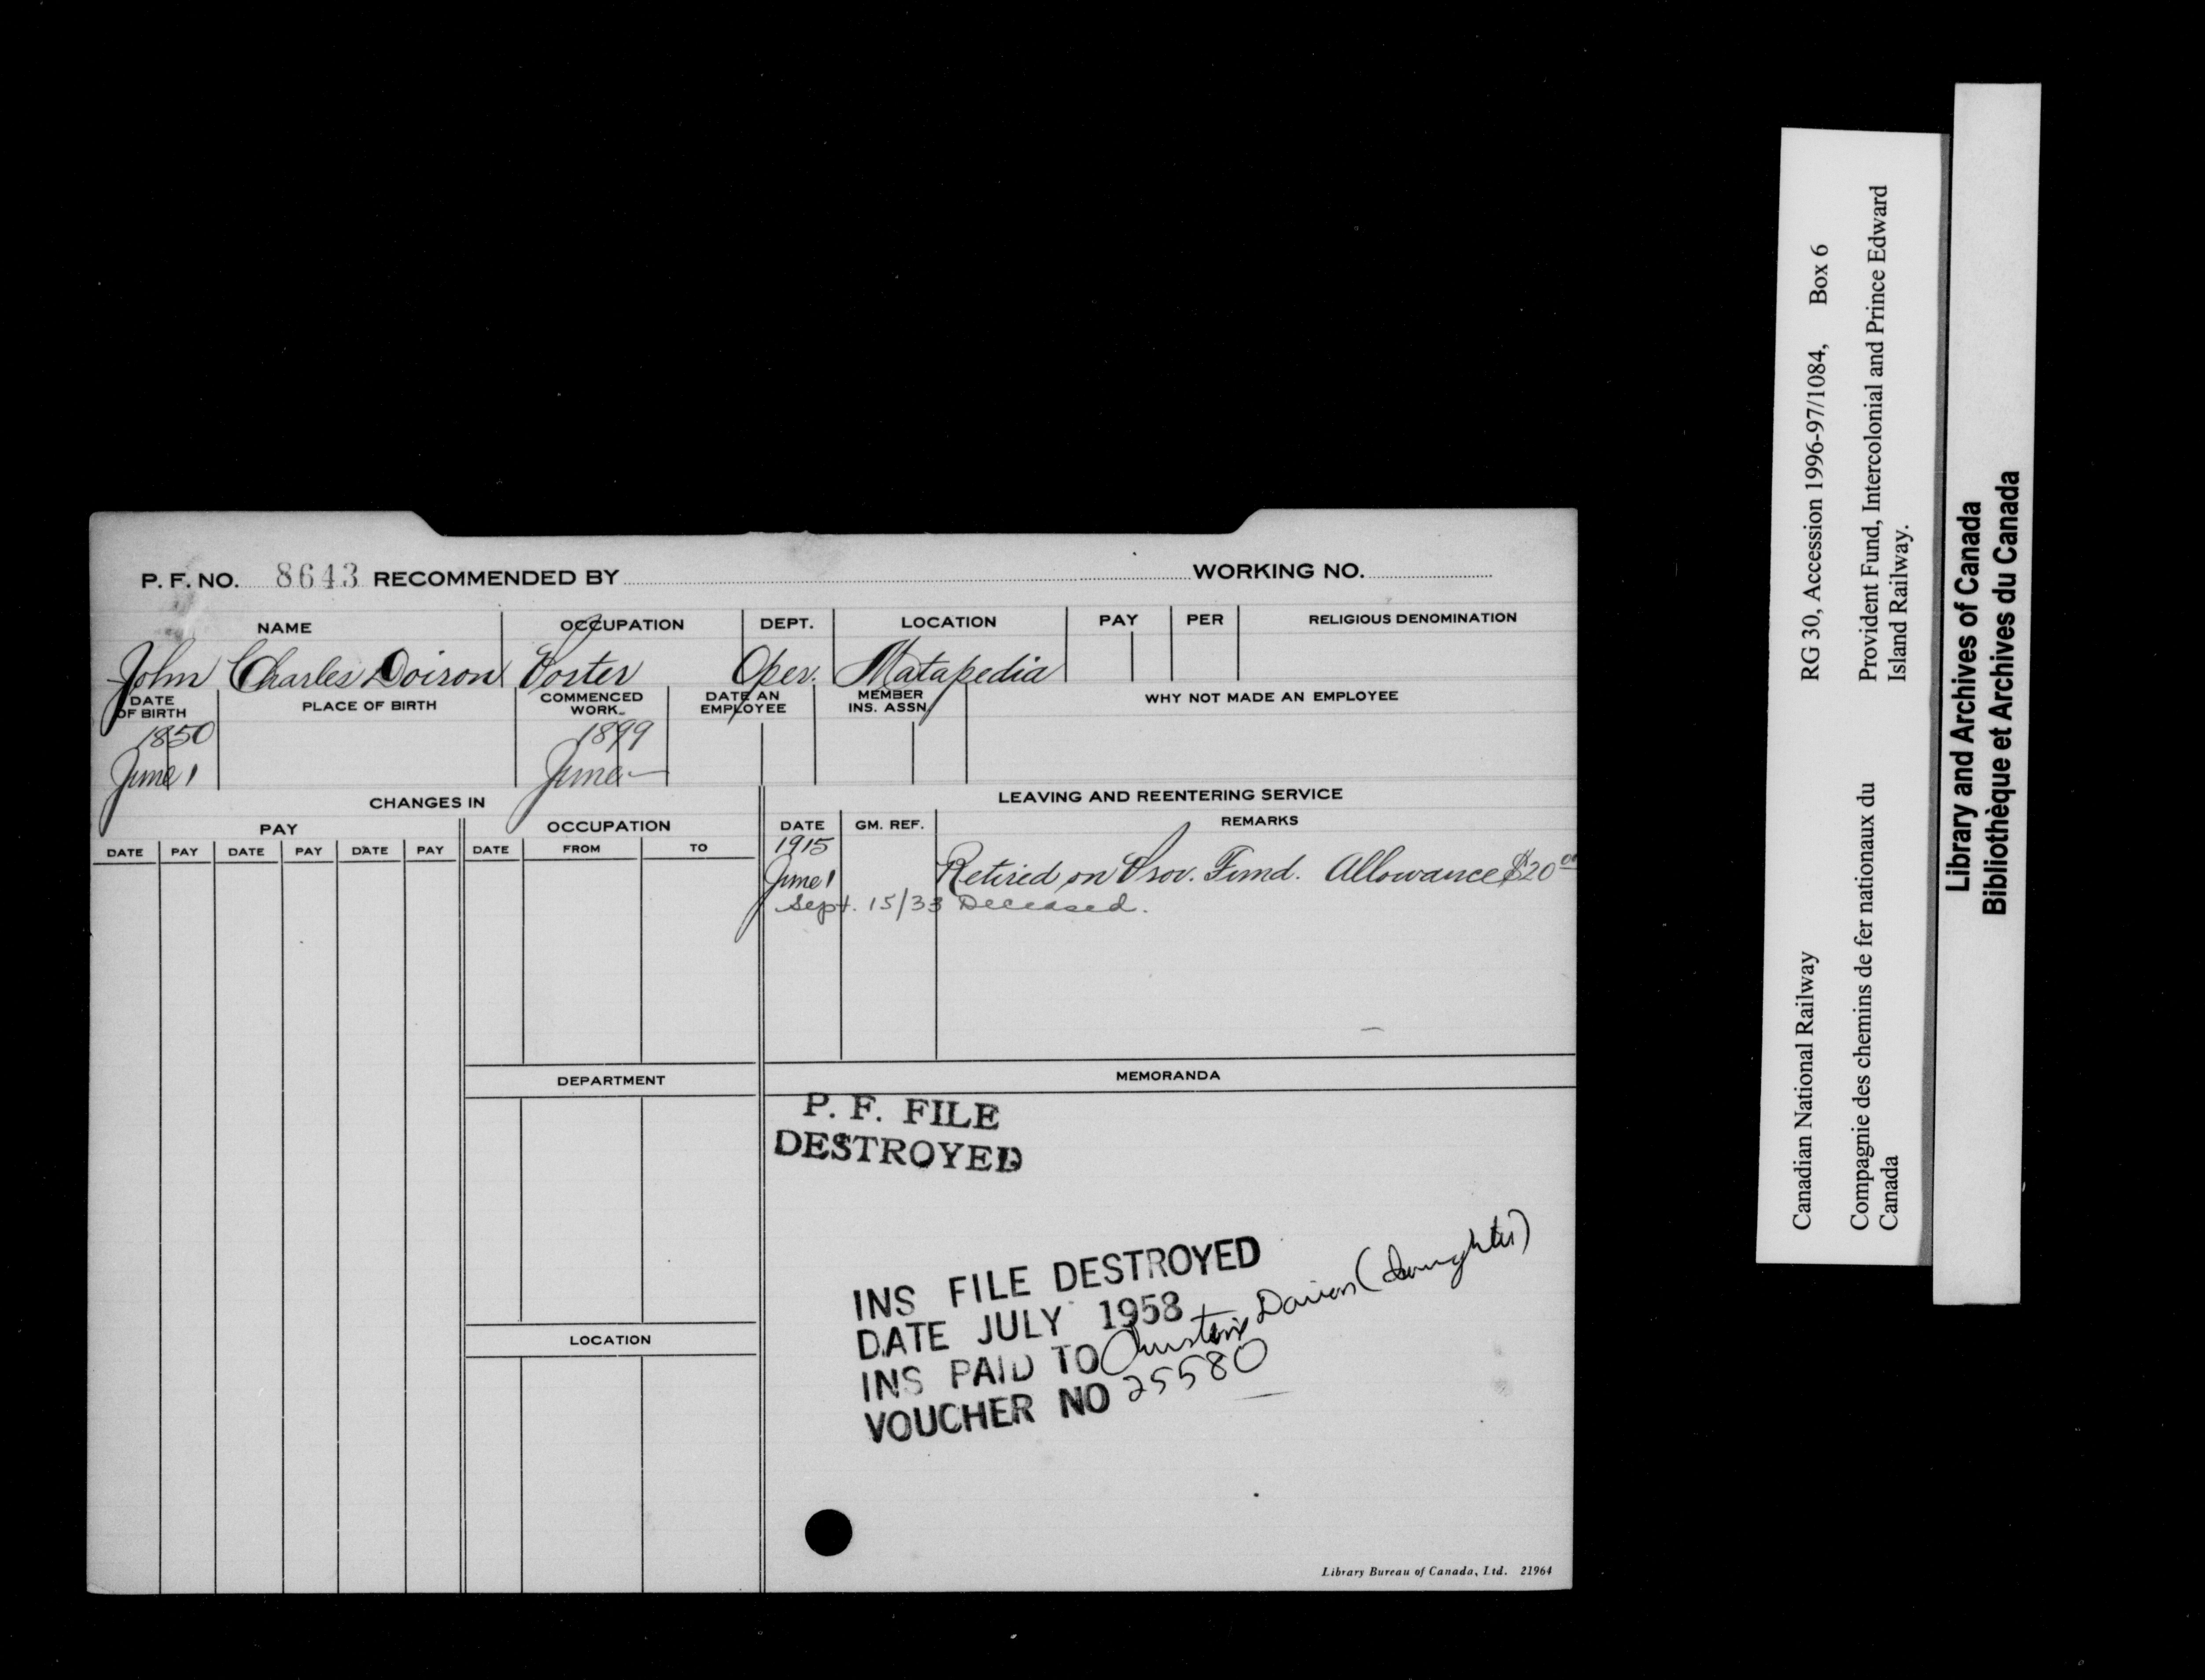 P. F. NO. 8643 RECOMMENDED BY WORKING NO.
NAME OCCUPATION DEPT. LOCATION PAY PER RELIGIOUS DENOMINATION
John Charles Doiron Porter Oper. Matapedia
DATE OF BIRTH PLACE OF BIRTH COMMENCED WORK DATE AN EMPLOYEE MEMBER INS. ASSN. WHY NOT MADE AN EMPLOYEE
1850 1899
June 1 June —
CHANGES IN LEAVING AND REENTERING SERVICE
PAY OCCUPATION DATE GM. REF. REMARKS
DATE PAY DATE PAY DATE PAY DATE FROM TO
1915
June 1 Retired on Prov. Fund. Allowance $20 00
Sept. 15/33 Deceased.
DEPARTMENT MEMORANDA
P. F. FILE
DESTROYED
INS FILE DESTROYED
DATE JULY 1958
INS PAID TO (daughter)
VOUCHER NO 25580
LOCATION
Library Bureau of Canada, Ltd. 21964
Canadian National Railway RG 30, Accession 1996-97/1084, Box 6
Compagnie des chemins de fer nationaux du Canada
Provident Fund, Intercolonial and Prince Edward Island Railway.
Library and Archives of Canada
Bibliothèque et Archives du Canada